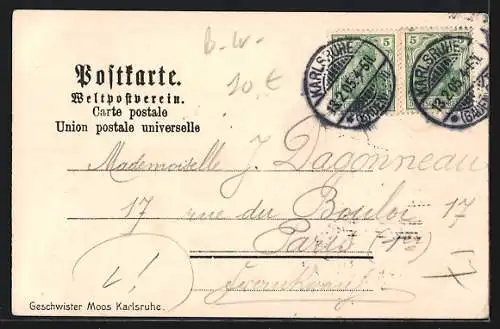 b.w.
10€
Postkarte.
Weltpostverein.
Carte postale
Union postale universelle
5 5
KARLSRUHE 13.2.05.4-5N. (BADEN)
KARLSRUHE 13.2.05.4-5N. (BADEN)
Mademoiselle J. Dagonneau
17 rue du Bouloi 17
Paris
Frankreich
Geschwister Moos Karlsruhe.